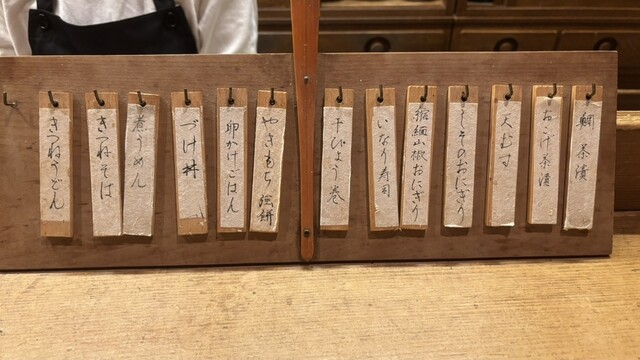 鯛茶漬
おこげ茶漬
天むす
しそのおにぎり
縮緬山椒おにぎり
いなり寿司
干ぴょう巻
やきもち 磯餅
卵かけごはん
づけ丼
煮うめん
きつねそば
きつねうどん